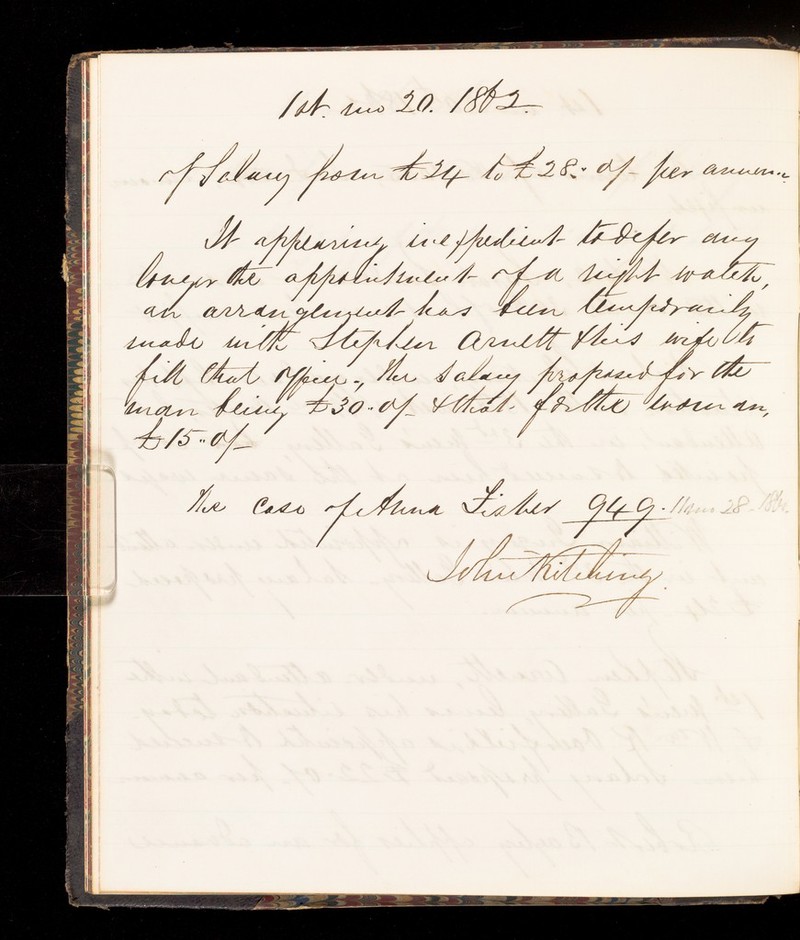 1st. mo 20. 1862.
of Salary from £24 to £28.. 0/- per annum.
It appearing inexpedient to defer any
longer the appointment of a night watch,
an arrangement has been temporarily
made with Stephen Arnett & his wife to
fill that office., the salary proposed for the
man being £30.. 0/- & that for the woman,
£15.. 0/-
The case of Anna Fisher 949. 11 mo 28 - 1862.
John Kitching